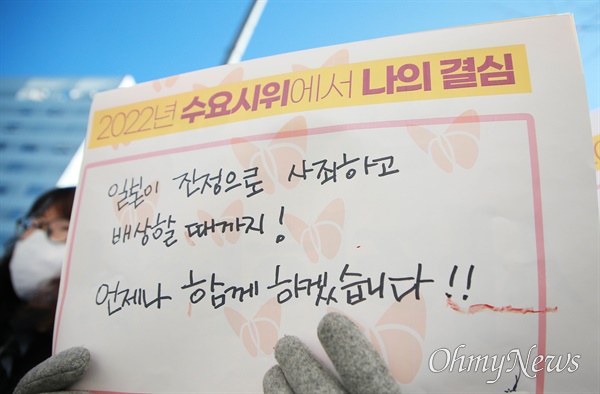 2022년 수요시위에서 나의 결심
일본이 진정으로 사죄하고
배상할 때까지!
언제나 함께 하겠습니다!!
OhmyNews